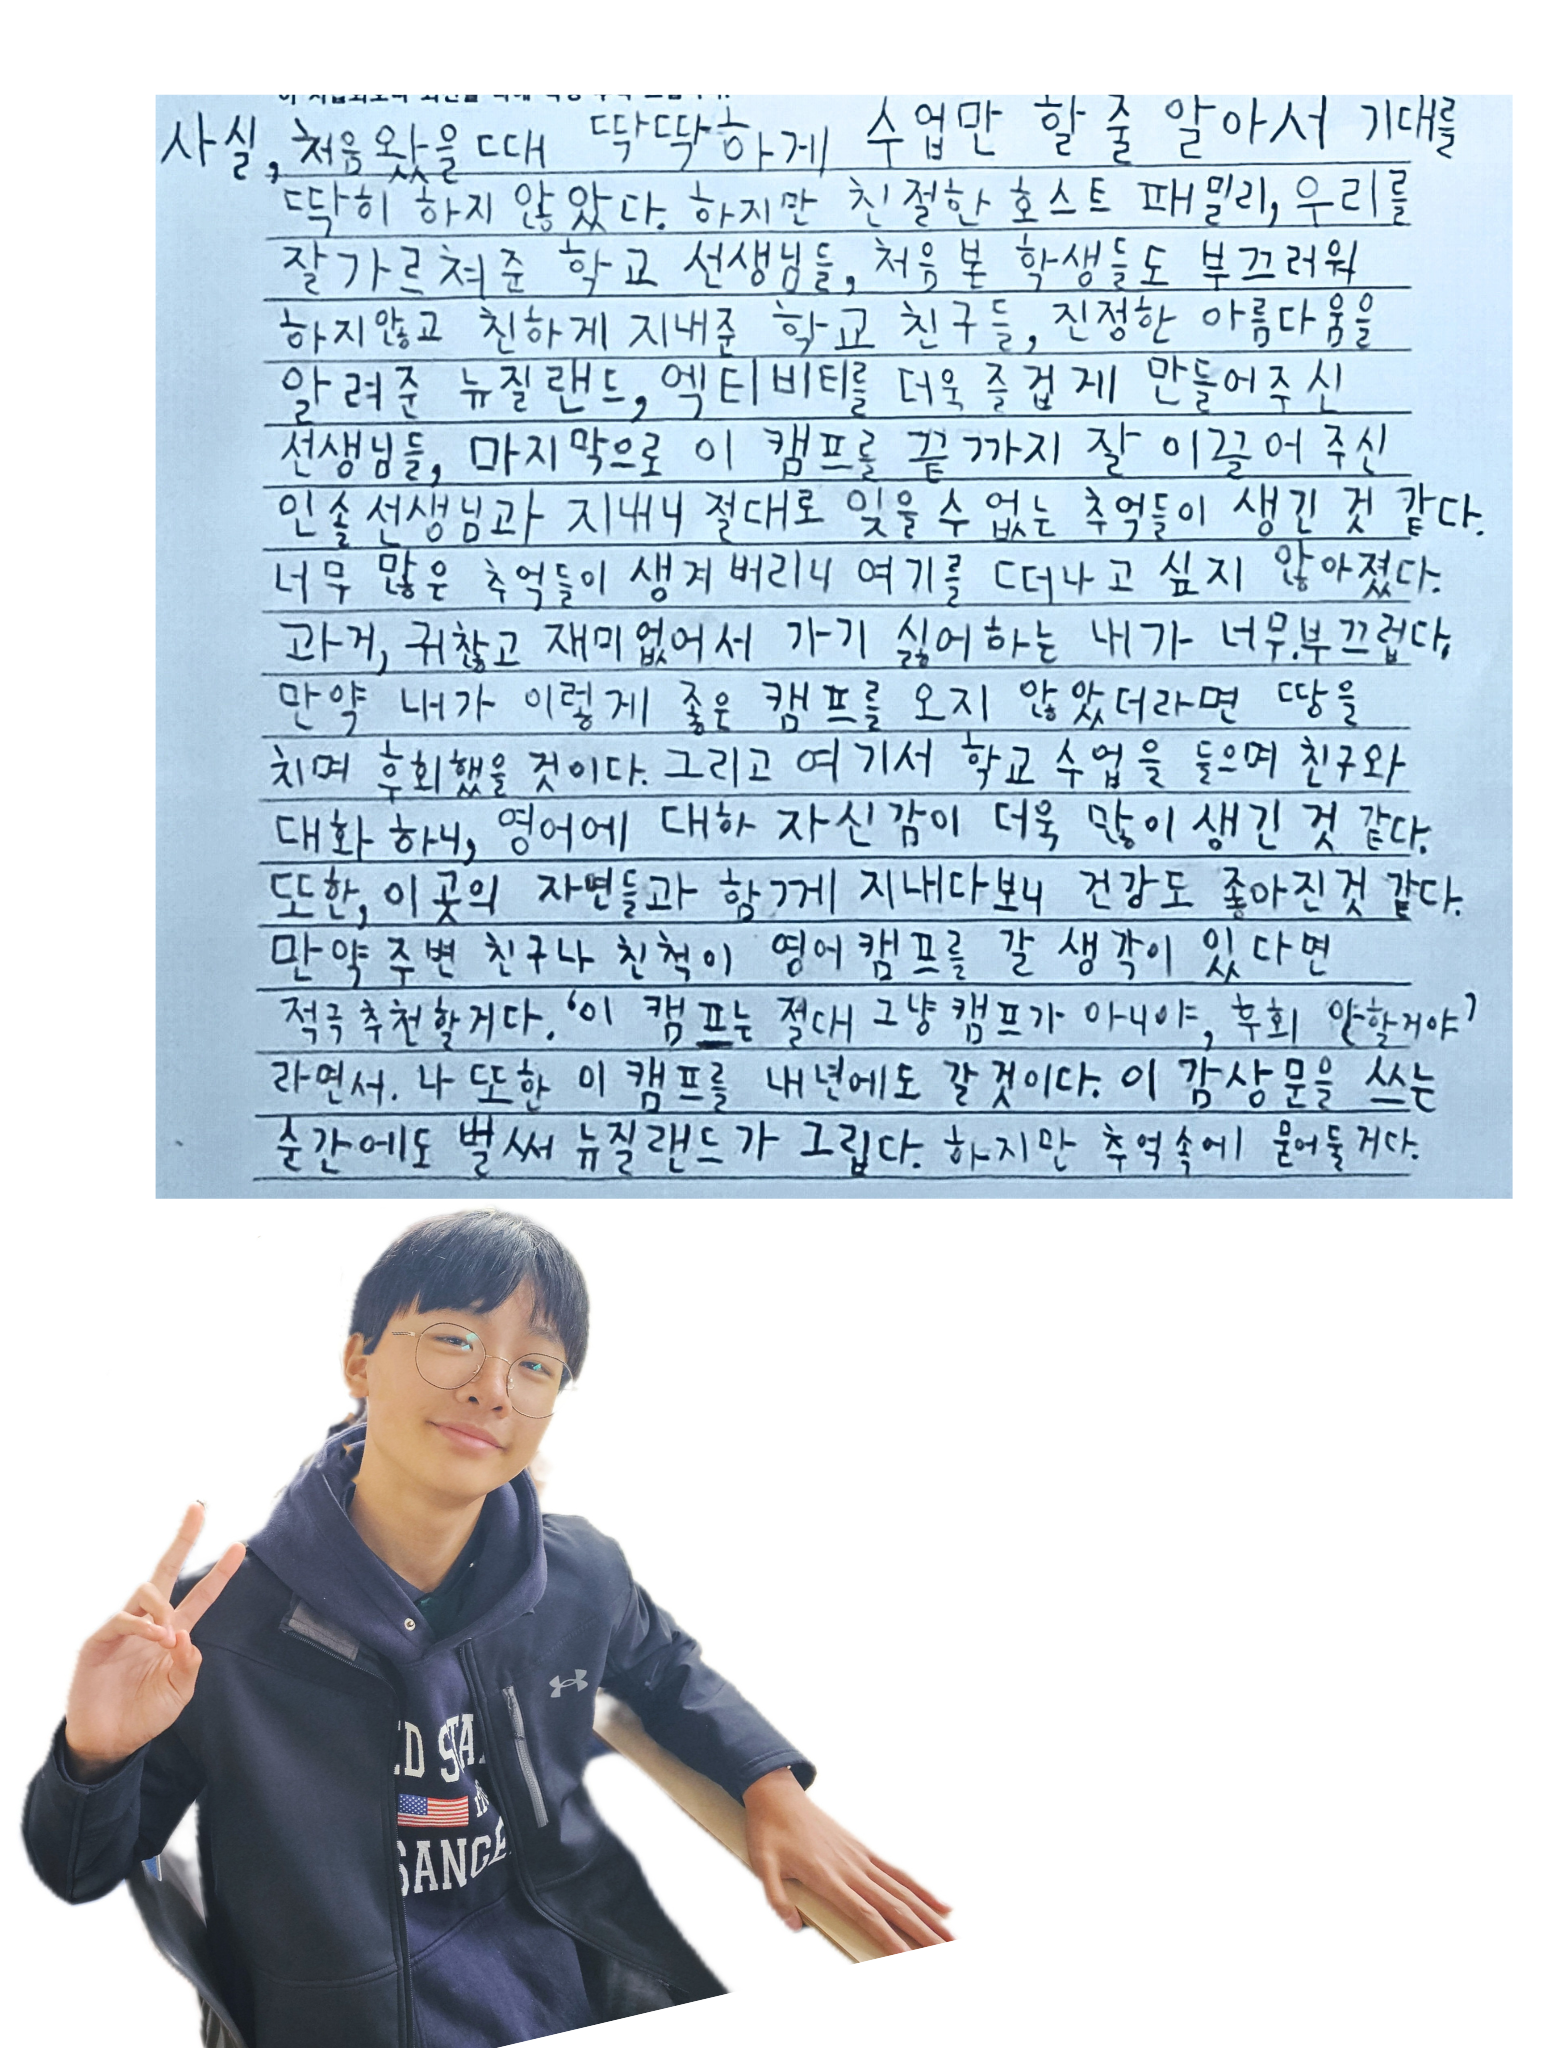 사실, 처음 왔을 때 딱딱하게 수업만 할 줄 알아서 기대를
딱히 하지 않았다. 하지만 친절한 호스트 패밀리, 우리를
잘 가르쳐준 학교 선생님들, 처음 본 학생들도 부끄러워
하지않고 친하게 지내준 학교 친구들, 진정한 아름다움을
알려준 뉴질랜드, 엑티비티를 더욱 즐겁게 만들어주신
선생님들, 마지막으로 이 캠프를 끝까지 잘 이끌어 주신
인솔선생님과 지내니 절대로 잊을 수 없는 추억들이 생긴 것 같다.
너무 많은 추억들이 생겨버리니 여기를 떠나고 싶지 않아졌다.
과거, 귀찮고 재미없어서 가기 싫어하는 내가 너무.부끄럽다.
만약 내가 이렇게 좋은 캠프를 오지 않았더라면 땅을
치며 후회했을 것이다. 그리고 여기서 학교 수업을 들으며 친구와
대화 하니, 영어에 대하 자신감이 더욱 많이 생긴 것 같다.
또한, 이 곳의 자연들과 함께 지내다보니 건강도 좋아진것 같다.
만약 주변 친구나 친척이 영어캠프를 갈 생각이 있다면
적극 추천할거다. '이 캠프는 절대 그냥 캠프가 아니야, 후회 안할거야'
라면서. 나 또한 이 캠프를 내년에도 갈 것이다. 이 감상문을 쓰는
순간에도 벌써 뉴질랜드가 그립다. 하지만 추억속에 묻어둘거다.
ED STA
SANGE